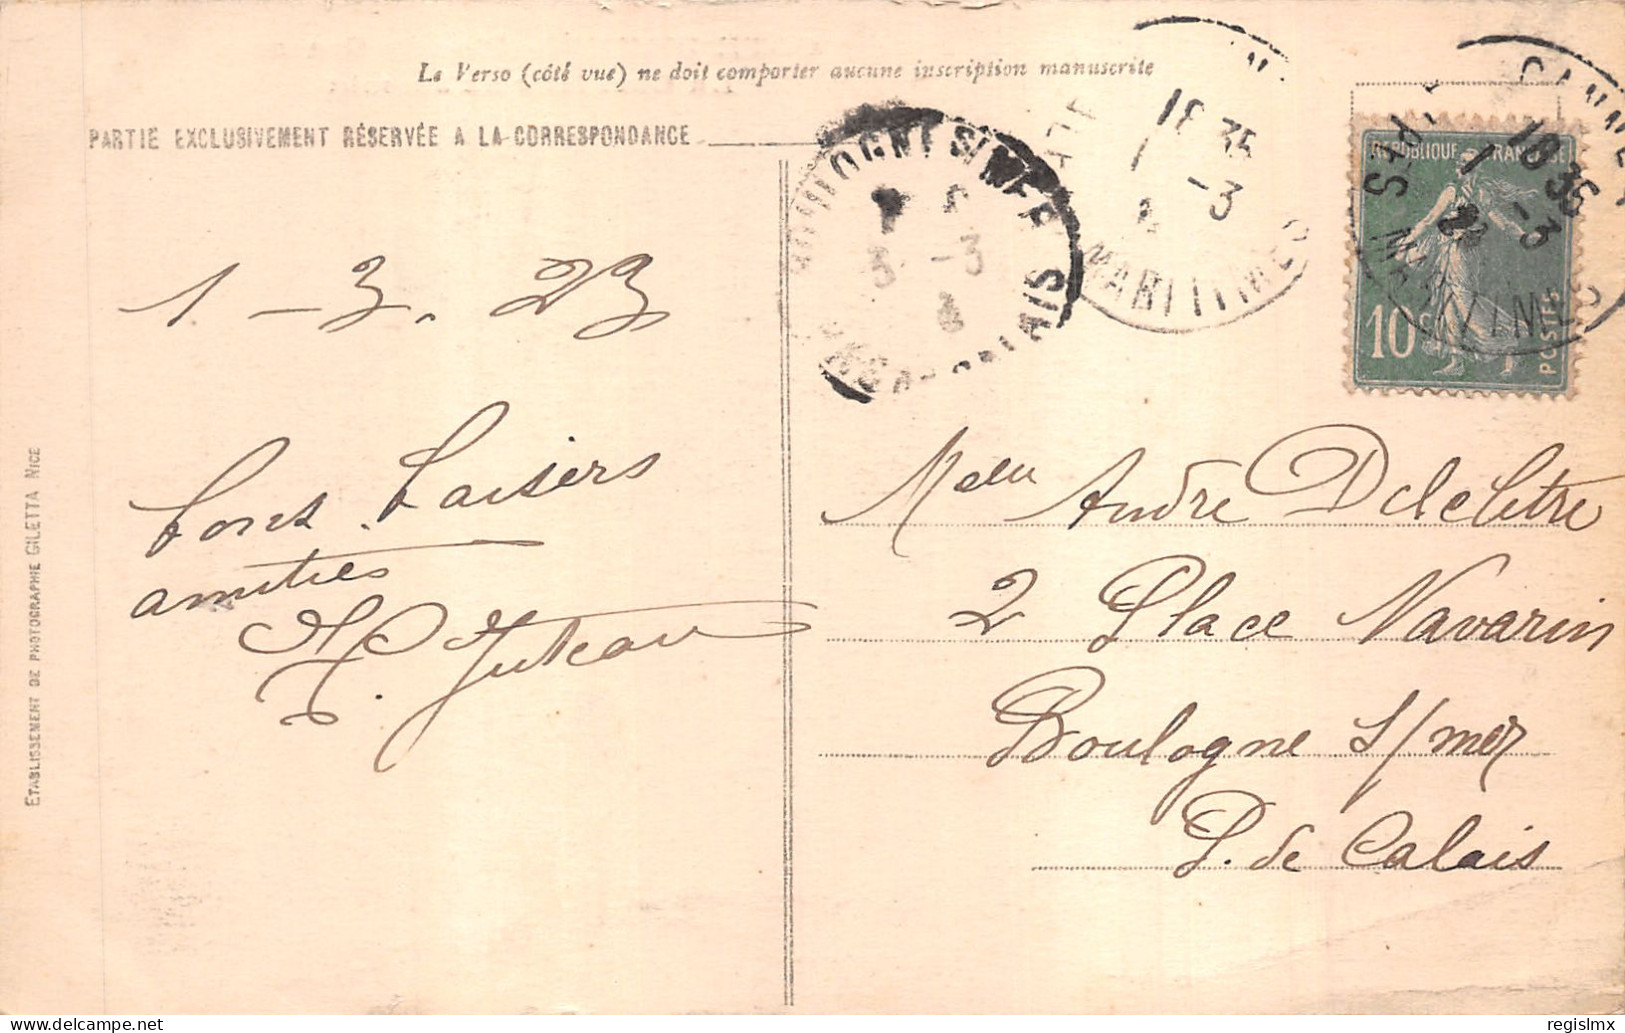 Le Verso (côté vue) ne doit comporter aucune inscription manuscrite
PARTIE EXCLUSIVEMENT RÉSERVÉE A LA CORRESPONDANCE
BOULOGNE S/MER
3 -3
PAS DE CALAIS
18 35
1 -3
MARITIMES
CANNES
18 35
1 -3
MARITIMES
REPUBLIQUE FRANÇAISE
10 c
POSTES
1 - 3. 23
bons baisers
amitiés
ETABLISSEMENT DE PHOTOGRAPHIE GILETTA NICE
André Delclitre
2 Place Navarin
Boulogne s/mer
P. de Calais
regislmx